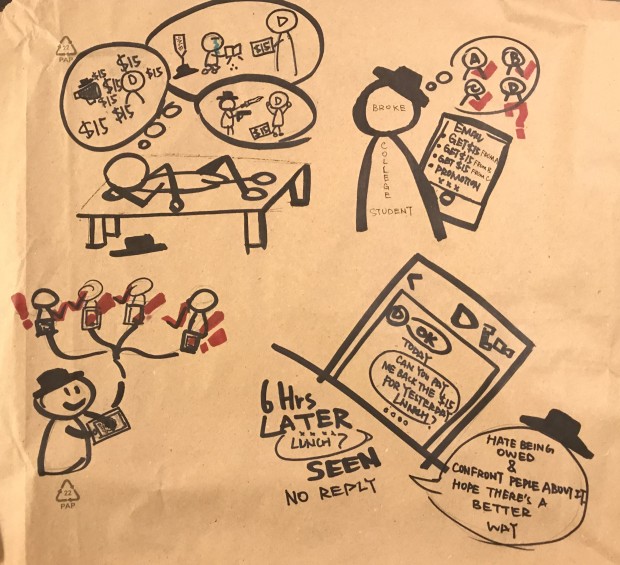 12
PAP
$15
$15
$15
$15
$15
$15
D
D
$15
D
$15
BROKE
COLLEGE
STUDENT
A
B
C
D
?
EMAIL
• GET $15 FROM A
• GET $15 FROM B
• GET $15 FROM C
• PROMOTION
x x x
!
!
!
!
22
PAP
<
D
D
OK
TODAY
CAN YOU PAY
ME BACK THE $15
FOR YESTERDAY
LUNCH?
6 Hrs
LATER
LUNCH?
SEEN
NO REPLY
HATE BEING
OWED
&
CONFRONT PEPLE ABOUT IT
HOPE THERE'S A
BETTER
WAY